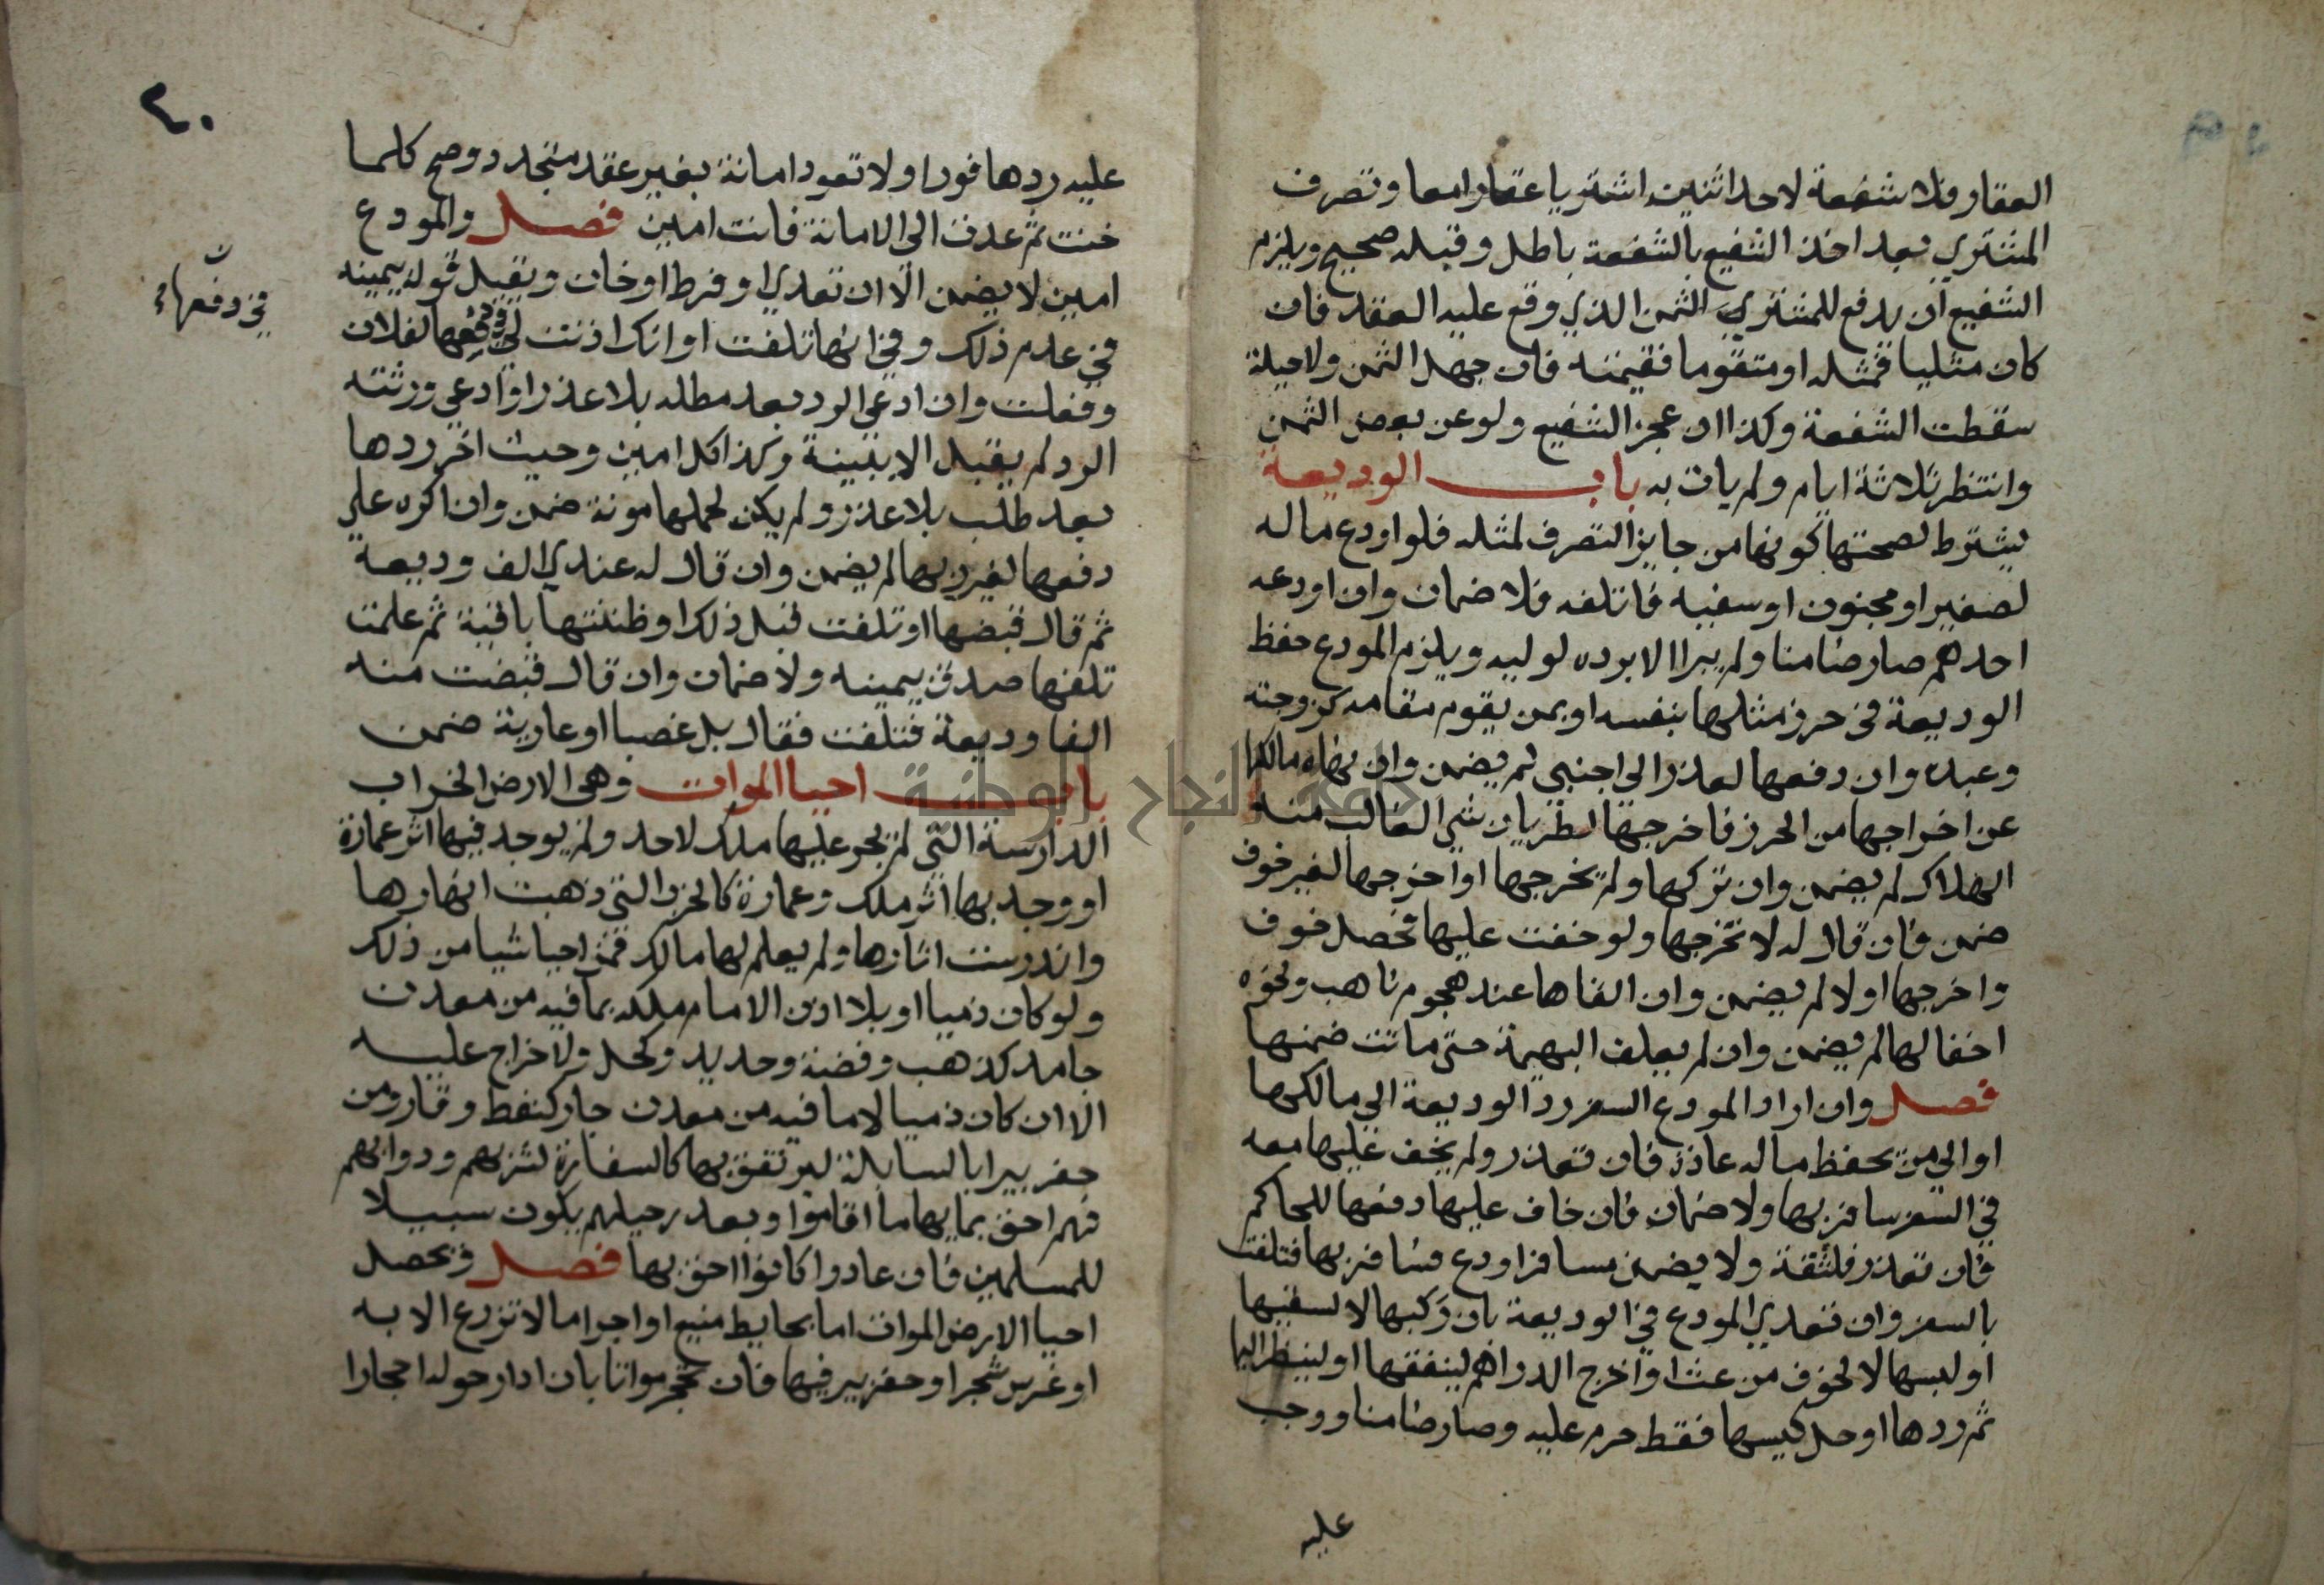 العقار فلا شفعة لاحد اثنين اشتريا عقارا معا وتصرف
المشتري بعد اخذ الشفيع بالشفعة باطل وقبله صحيح ويلزم
الشفيع ان يدفع للمشتري الثمن الذي وقع عليه العقد فان
كان مثليا فمثله او متقوما فقيمته فان جهل الثمن ولا حيلة
سقطت الشفعة وكذا ان عجز الشفيع ولو عن بعض الثمن
وانتظر ثلاثة ايام ولم يات به باب الوديعة
يشترط لصحتها كونها من جايز التصرف لمثله فلو اودع ماله
لصغير او مجنون او سفيه فاتلفه فلا ضمان وان اودعه
احدهم صار ضامنا ولم يبرا الا برده لوليه ويلزم المودع حفظ
الوديعة في حرز مثلها بنفسه او بمن يقوم مقامه كزوجته
وعبده وان دفعها لعذر الى اجنبي لم يضمن وان نهاه مالكها
عن اخراجها من الحرز فاخرجها لطريان شي الغالب منه
الهلاك لم يضمن وان تركها ولم يخرجها او اخرجها لغير خوف
ضمن فان قال له لا تخرجها ولو خفت عليها فحصل خوف
واخرجها او لا لم يضمن وان القاها عند هجوم ناهب ونحوه
اخفا لها لم يضمن وان لم يعلف البهيمة حتى ماتت ضمنها
فصل وان اراد المودع السفر رد الوديعة الى مالكها
او الى من يحفظ ماله عادة فان تعذر ولم يخف عليها معه
في السفر سافر بها ولا ضمان فان خاف عليها دفعها للحاكم
فان تعذر فلثقة ولا يضمن مسافر اودع فسافر بها فتلفت
بالسفر وان تعدي المودع في الوديعة بان ركبها لا لسقيها
او لبسها لا لخوف من عث او اخرج الدراهم لينفقها او لينظر اليها
ثم ردها او حل كيسها فقط حرم عليه وصار ضامنا ووجب
عليه
٢٠
عليه ردها فورا ولا تعود امانة بغير عقد متجدد وصح كلما
خنت ثم عدت الى الامانة فانت امين فصل والمودع
امين لا يضمن الا ان تعدي او فرط او خان ويقبل قوله بيمينه
في عدم ذلك وفي انها تلفت او انك اذنت لي في دفعها لفلان
في دفعها
ن
وفعلت وان ادعي الرد بعد مطله بلا عذر او ادعي ورثته
الرد لم يقبل الا ببينة وكذا كل امين وحيث اخر ردها
بعد طلب بلا عذر ولم يكن لحملها مونة ضمن وان اكره علي
دفعها لغير ربها لم يضمن وان قال له عندي الف وديعة
ثم قال قبضها او تلفت قبل ذلك او ظننتها باقية ثم علمت
تلفها صدق بيمينه ولا ضمان وان قال قبضت منه
الفا وديعة فتلفت فقال بل غصبا او عارية ضمن
باب احيا الموات وهي الارض الخراب
الدارسة التي لم يجر عليها ملك لاحد ولم يوجد فيها اثر عمارة
او وجد بها اثر ملك وعمارة كالخرب التي ذهبت انهارها
واندرست اثارها ولم يعلم لها مالك فمن احيا شيا من ذلك
ولو كان ذميا او بلا اذن الامام ملكه بما فيه من معدن
جامد كذهب وفضة وحديد وكحل ولا خراج عليه
الا ان كان ذميا لا ما فيه من معدن جار كنفط وقار ومن
حفر بيرا بالسابلة ليرتفق بها كالسفارة لشربهم ودوابهم
فهم احق بمايها ما اقاموا وبعد رحيلهم يكون سبيلا
للمسلمين فان عادوا كانوا احق بها فصل ويحصل
احيا الارض الموات اما بحايط منيع او اجرا ما لا تزرع الا به
او غرس شجر او حفر بير فيها فان تحجر مواتا بان ادار حوله احجارا
جامعة النجاح الوطنية